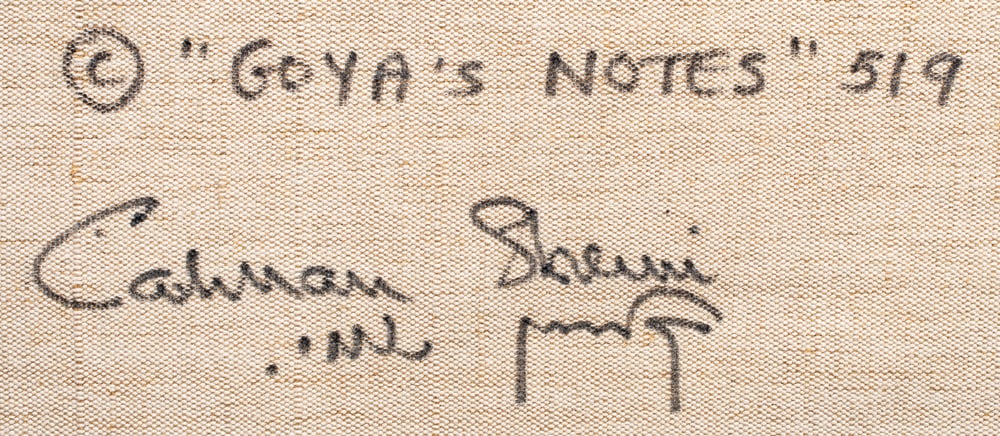 © "GOYA'S NOTES" 519
Calman Shemi